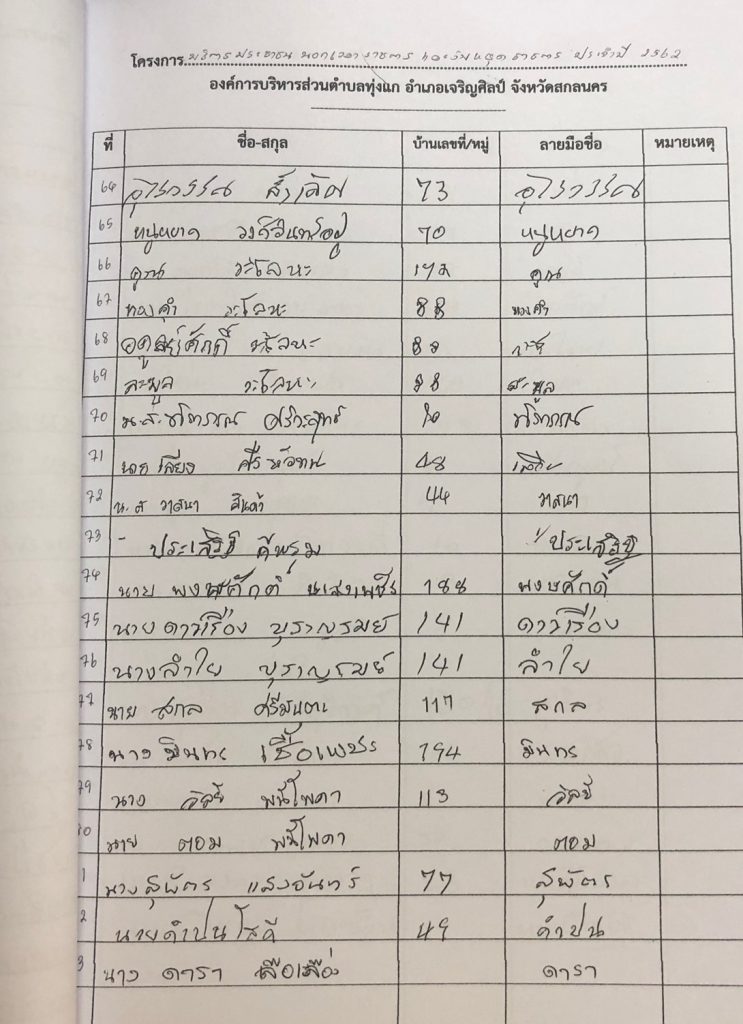 โครงการ บริการประชาชน นอกเวลาราชการ และวันหยุดราชการ ประจำปี 2562
องค์การบริหารส่วนตำบลทุ่งแก อำเภอเจริญศิลป์ จังหวัดสกลนคร
ที่ ชื่อ-สกุล บ้านเลขที่/หมู่ ลายมือชื่อ หมายเหตุ
64 อุไรวรรณ 73 อุไรวรรณ
65 หนูหยาด 70 หนูหยาด
66 คูณ วะโลหะ คูณ
67 ทองคำ วะโลหะ 88 ทองคำ
68 วะโลหะ 88
69 ละมูล วะโลหะ 88 ละมูล
70 น.ส.
71 นาย เลียง ศรีหัวทน 48
72 น.ส วาสนา สีแก้ว 44 วาสนา
73 - ประเสริฐ คีพรม ประเสริฐ
74 นาย พงษศักดิ์ แสงเพชร 188 พงษศักดิ์
75 นายดาวเรือง บุราญรมย์ 141 ดาวเรือง
76 นางลำไย บุราญรมย์ 141 ลำไย
77 นาย สกล 117 สกล
78 นาง มินทร เชื้อเพชร 194 มินทร
79 นาง วิลัย พันโพคา 113 วิลัย
80 นาย ตอม พันโพคา ตอม
1 นางสุพัตร แสงจันทร์ 77 สุพัตร
2 นายคำปน โสดี 49 คำปน
3 นาง ดารา ลือเลื่อง ดารา